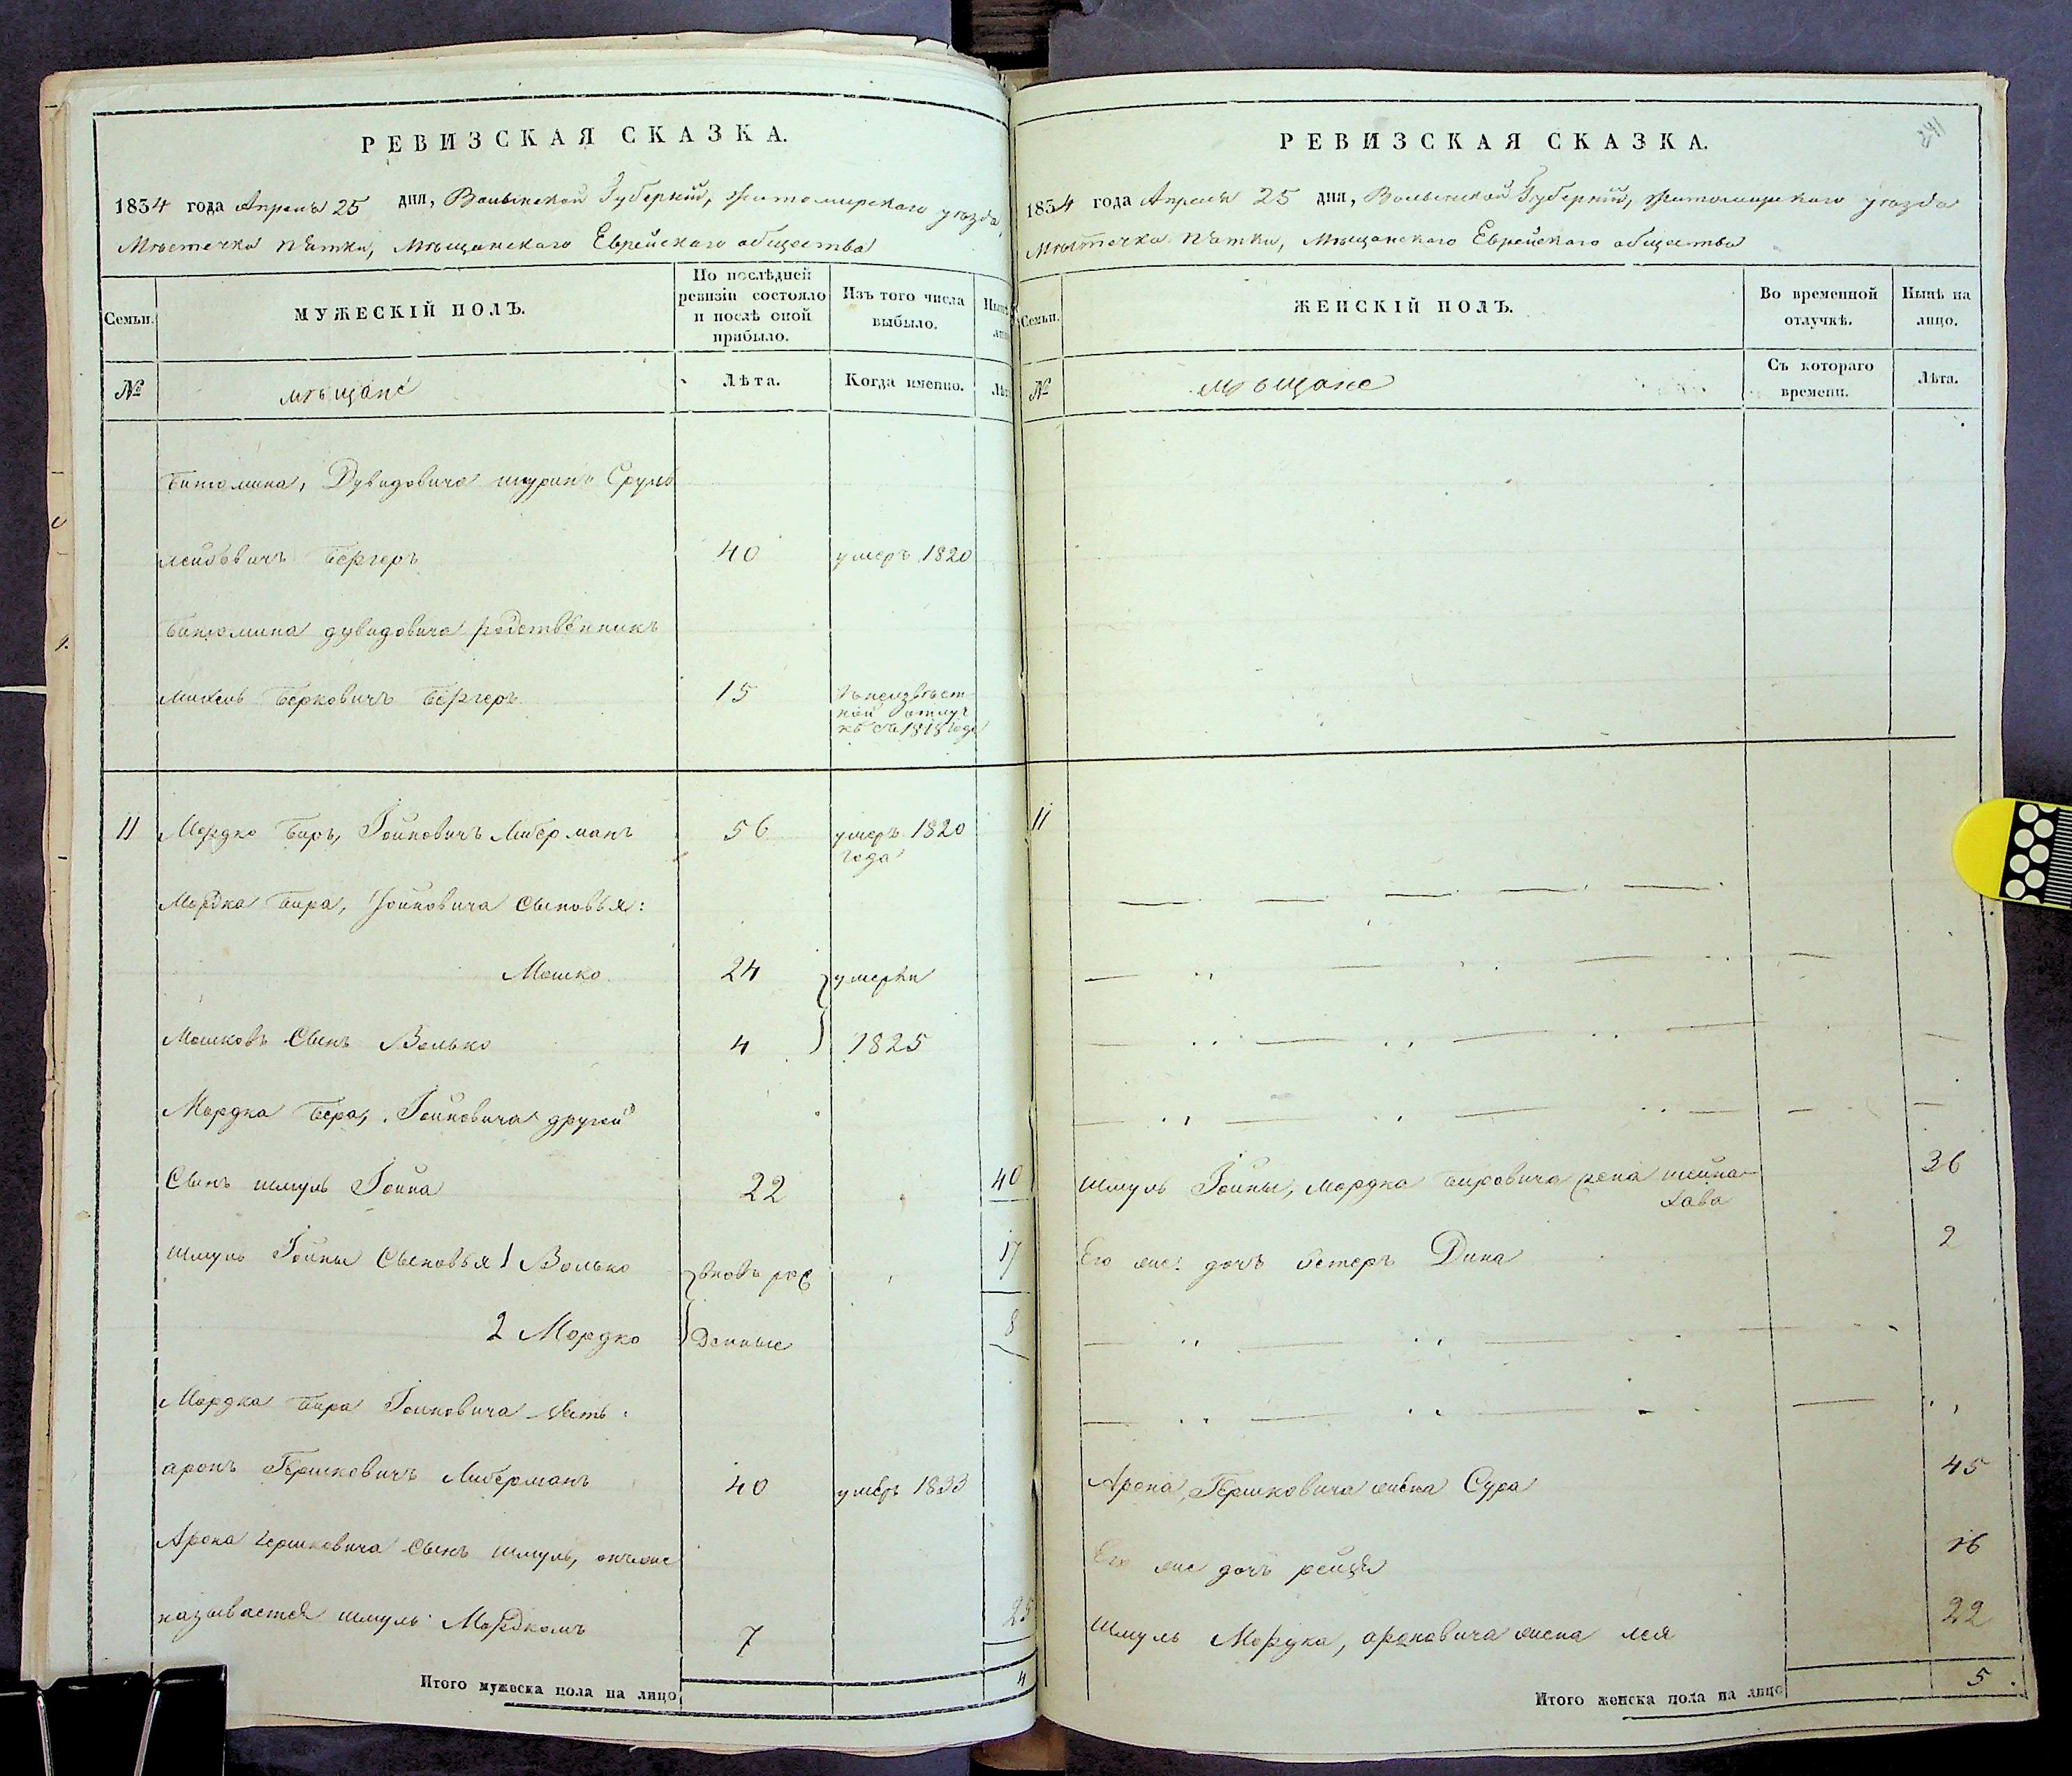 РЕВИЗСКАЯ СКАЗКА.
1834 года Апреля 25 дня, Волынской Губерніи, Житомирского уѣзда,
Мѣстечка Пятки, Мѣщанскаго Еврейскаго общества
Семьи.
МУЖЕСКІЙ ПОЛЪ.
По послѣдней ревизіи состояло и послѣ оной прибыло.
Изъ того числа выбыло.
№
мѣщане
Лѣта.
Когда именно.
Биномина, Дувидовича шуринъ Сруль
Лейбовичъ Бергеръ 40 умеръ 1820
Биномина дувидовича родственникъ
Михель Берковичъ Бергеръ 15 въ неизвѣст
ной отлуч
кѣ съ 1818 года
11 Мордко Беръ, Іойновичъ Либерманъ 56 умеръ 1820
года
Мордка Бера, Іойновича Сыновья:
Мошко 24 умерли
Мошковъ Сынъ Волько 4 1825
Мордка Бера, Іойновича другой
Сынъ шмуль Іойна 22 40
шмуль Іойны Сыновья 1 Волько вновь рож 17
2 Мордко Денные 8
Мордка Бера Іойновича зять:
аронъ Гершковичъ Либерманъ 40 умеръ 1833
Арона гершковича Сынъ шмуль, онъ же
называется шмуль Мордкомъ 7 25
Итого мужеска пола на лицо 4
241
РЕВИЗСКАЯ СКАЗКА.
1834 года Апреля 25 дня, Волынской Губерніи, Житомирского уѣзда
Мѣстечка Пятки, Мѣщанскаго Еврейскаго общества
Семьи.
ЖЕНСКІЙ ПОЛЪ.
Во временной отлучкѣ.
Нынѣ на лицо.
№
мѣщане
Съ котораго времени.
Лѣта.
11
Шмуль Іойны, Мордка Беровича жена шейна 36
Хава
Его же дочь Естеръ Дина 2
Арона, Гершковича жена Сура 45
Его же дочь рейзя 16
Шмуль Мордка, ароновича жена лея 22
Итого женска пола на лицо 5.